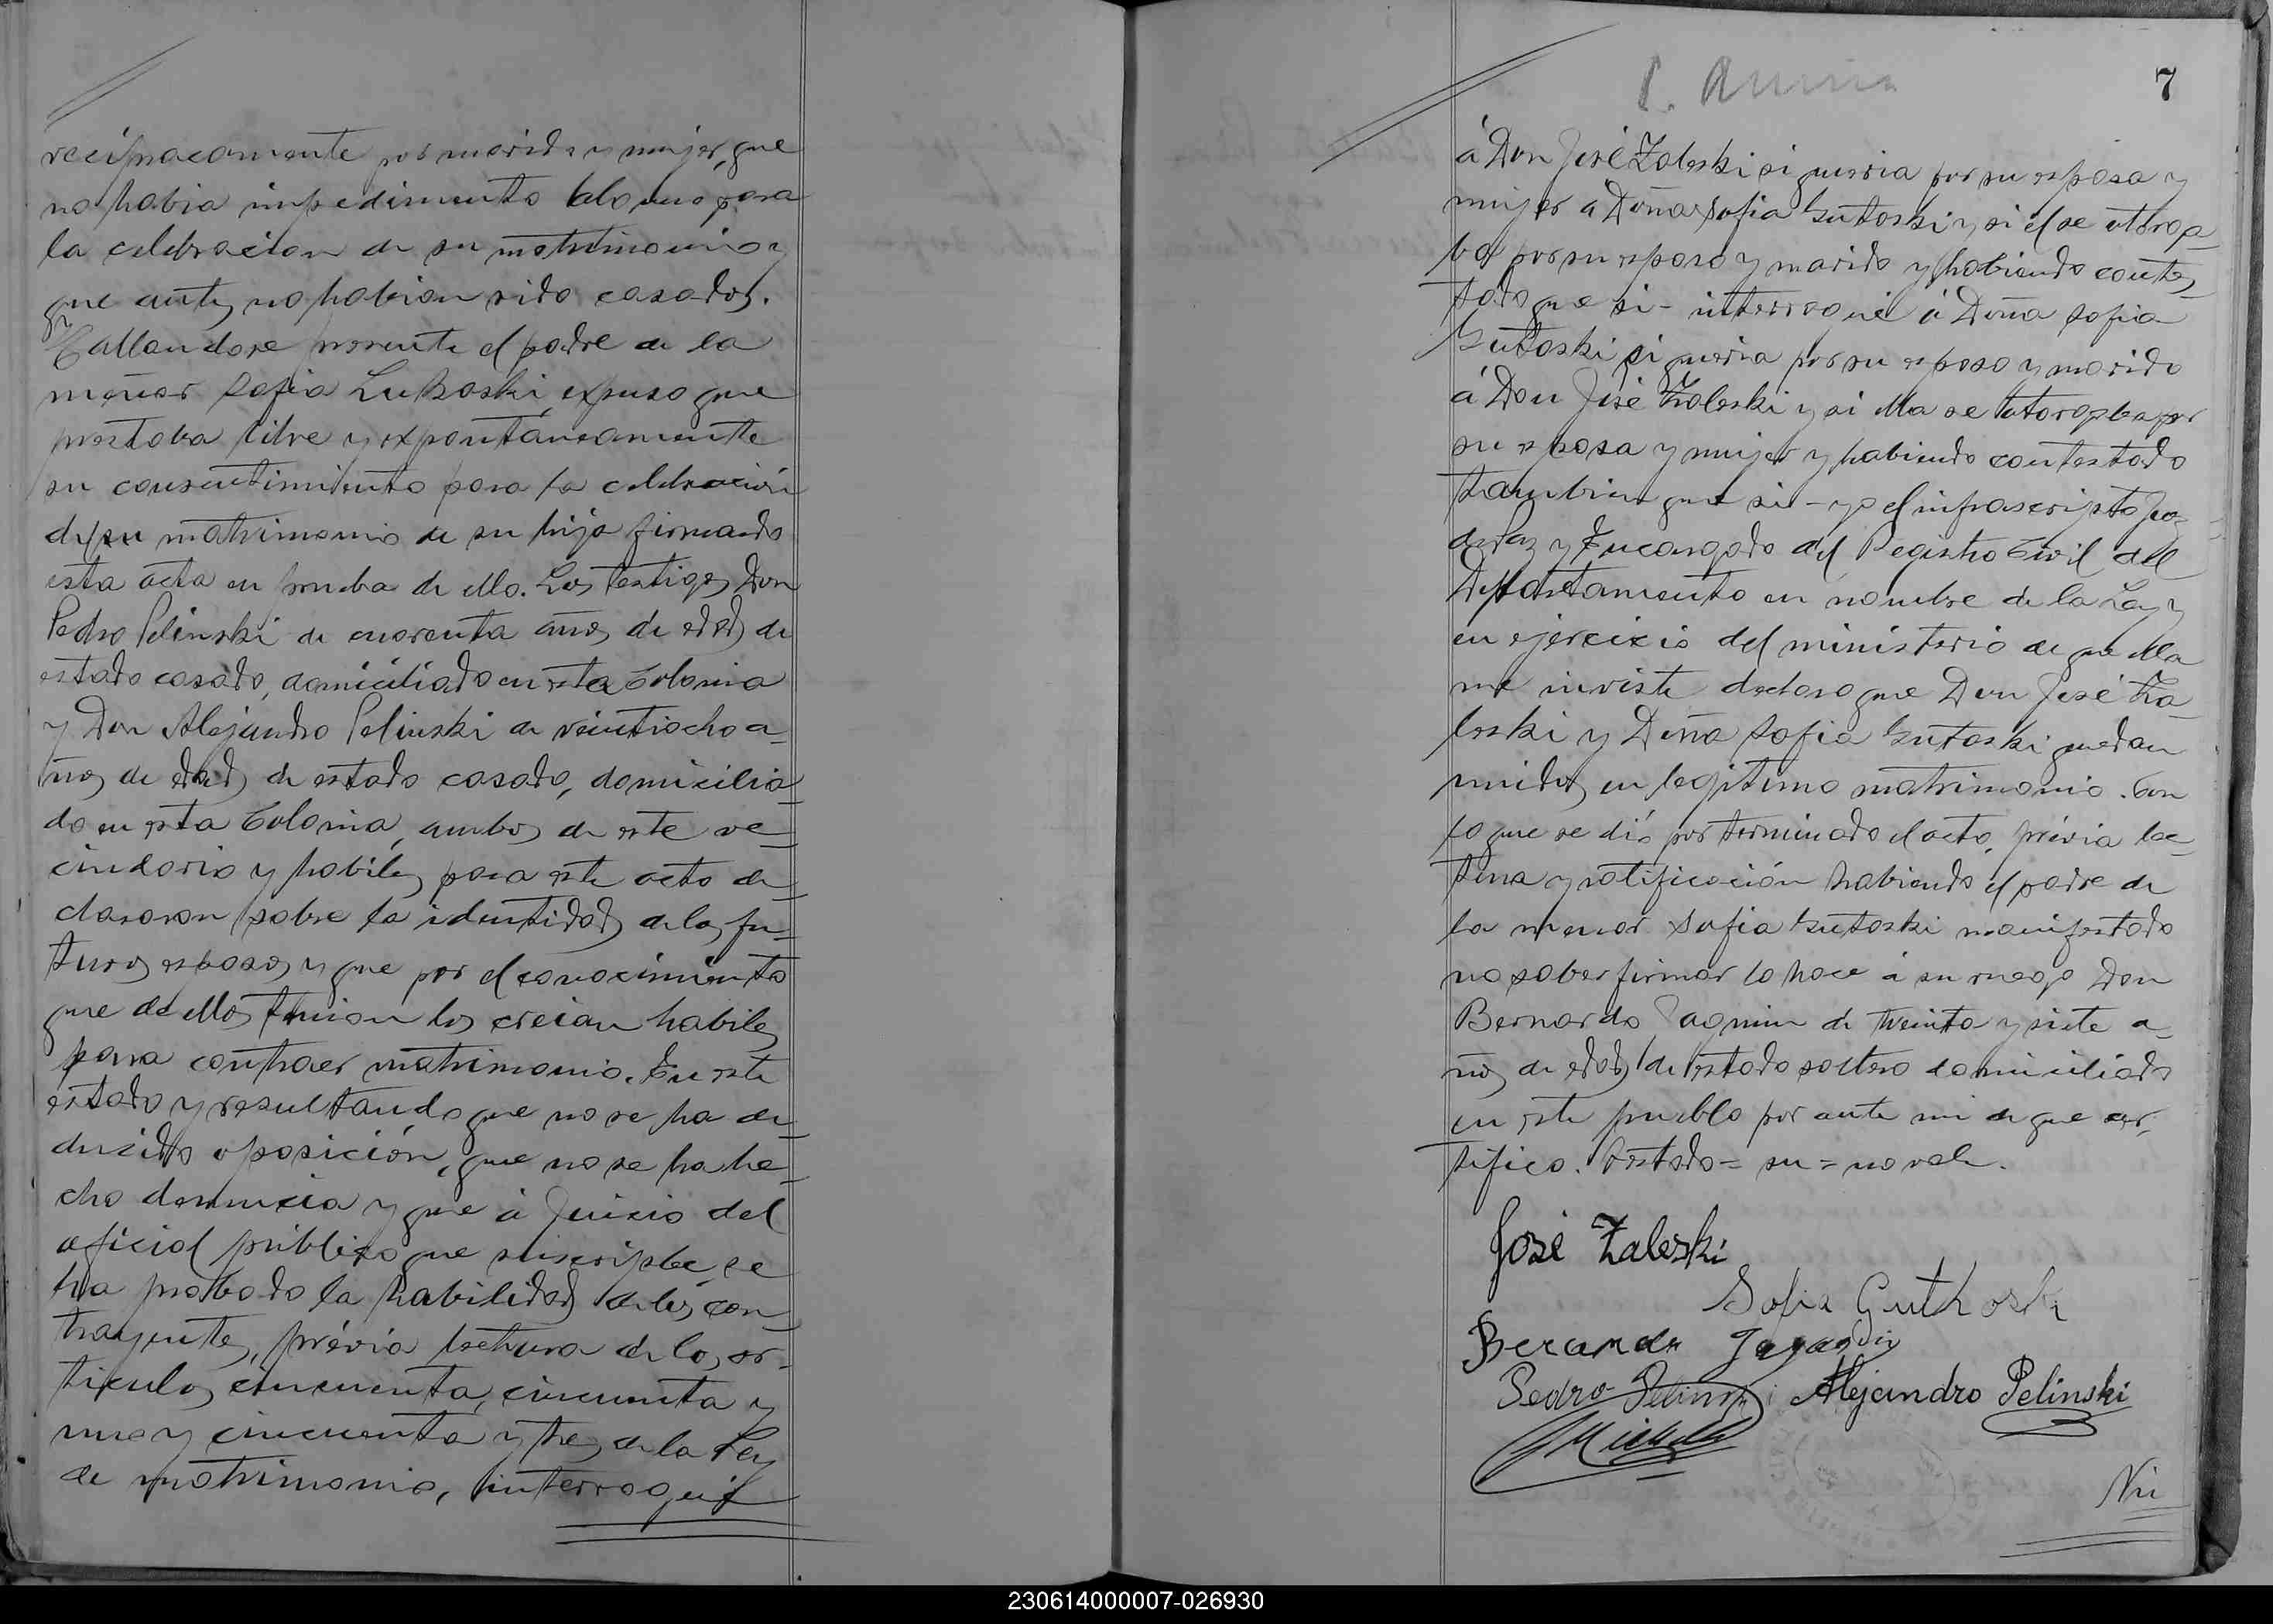 recíprocamente por marido y mujer, que
no habia impedimento alguno para
la celebracion de su matrimonio y
que antes no habian sido casados.
y hallandose presente el padre de la
menor Sofia Gutkoski, expuso que
prestaba libre y expontaneamente
su consentimiento para la celebración
de su matrimonio de su hija firmando
esta acta en prueba de ello. Los testigos Don
Pedro Pelinski de cuarenta años de edad de
estado casado, domiciliado en esta Colonia
y Don Alejandro Pelinski de veintiocho a-
ños de edad de estado casado, domicilia-
do en esta Colonia, ambos de este ve-
cindario y habiles para este acto de-
clararon sobre la identidad de los fu-
turos esposos y que por el conocimiento
que de ellos tenian los creian habiles
para contraer matrimonio. En este
estado y resultando que no se ha de-
ducido oposición, que no se ha he-
cho denuncia y que á juicio del
oficial público que suscripbe, se
ha probado la habilidad de los con-
trayentes, prévia lectura de los ar-
ticulos cincuenta, cincuenta y
uno y cincuenta y tres de la Ley
de matrimonio, interrogué
7
á Don José Zaleski si queria por su esposa y
mujer a Doña Sofia Gutoski y si el se otorga-
ba por su esposo y marido y habiendo contes-
tado que si - interrogué á Doña Sofia
Gutoski si queria por su esposo y marido
á Don José Zaleski y si ella se otorgaba por
su esposa y mujer y habiendo contestado
tambien que si - yo el infrascripto Juez
de Paz y Encargado del Registro Civil del
Departamento en nombre de la Ley y
en ejercicio del ministerio de que ella
me inviste declaro que Don José Za-
leski y Doña Sofia Gutoski quedan
unidos en legitimo matrimonio. Con
lo que se dió por terminado el acto, prévia lec-
tura y ratificación habiendo el padre de
la menor Sofia Gutoski manifestado
no saber firmar lo hace á su ruego Don
Bernardo de treinta y siete a-
ños de edad de estado soltero domiciliado
en este pueblo por ante mi de que cer-
tifico. Testado = su = no vale.
José Zaleski
Sofia Guthoski
Pedro Pelinski Alejandro Pelinski
230614000007-026930